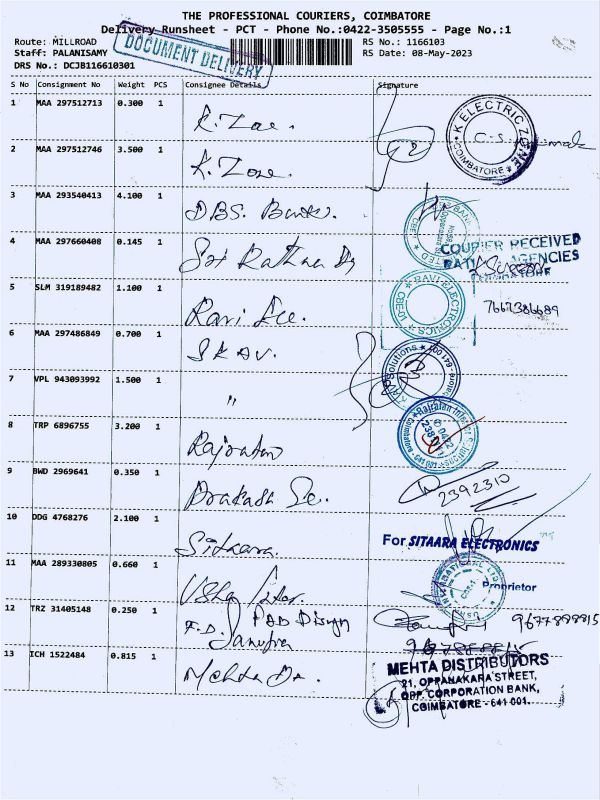 THE PROFESSIONAL COURIERS, COIMBATORE
Delivery Runsheet - PCT - Phone No.:0422-3505555 - Page No.:1
Route: MILLROAD RS No.: 1166103
Staff: PALANISAMY RS Date: 08-May-2023
DRS No.: DCJB116610301
DOCUMENT DELIVERY
S No Consignment No Weight PCS Consignee Details Signature
1 MAA 297512713 0.300 1 K. Zone.
K ELECTRIC ZONE
COIMBATORE
2 MAA 297512746 3.500 1 K. Zone.
3 MAA 293540413 4.100 1 DBS. Bank.
4 MAA 297660408 0.145 1 Sri Rathna
COURIER RECEIVED
AGENCIES
5 SLM 319189482 1.100 1 Ravi Ele.
RAVI ELECTRONICS
CBE-01
7667386689
6 MAA 297486849 0.700 1 SKAV.
Solutions
641 001
7 VPL 943093992 1.500 1 "
8 TRP 6896755 3.200 1 Rajratan
9 BWD 2969641 0.350 1 Prakash
2392310
10 DDG 4768276 2.100 1 Sitaara.
For SITAARA ELECTRONICS
Proprietor
11 MAA 289330805 0.660 1 Usha Inter.
12 TRZ 31405148 0.250 1 F.D.
9677898815
13 ICH 1522484 0.815 1 Mehta
MEHTA DISTRIBUTORS
21, OPPANAKARA STREET,
OPP. CORPORATION BANK,
COIMBATORE - 641 001.